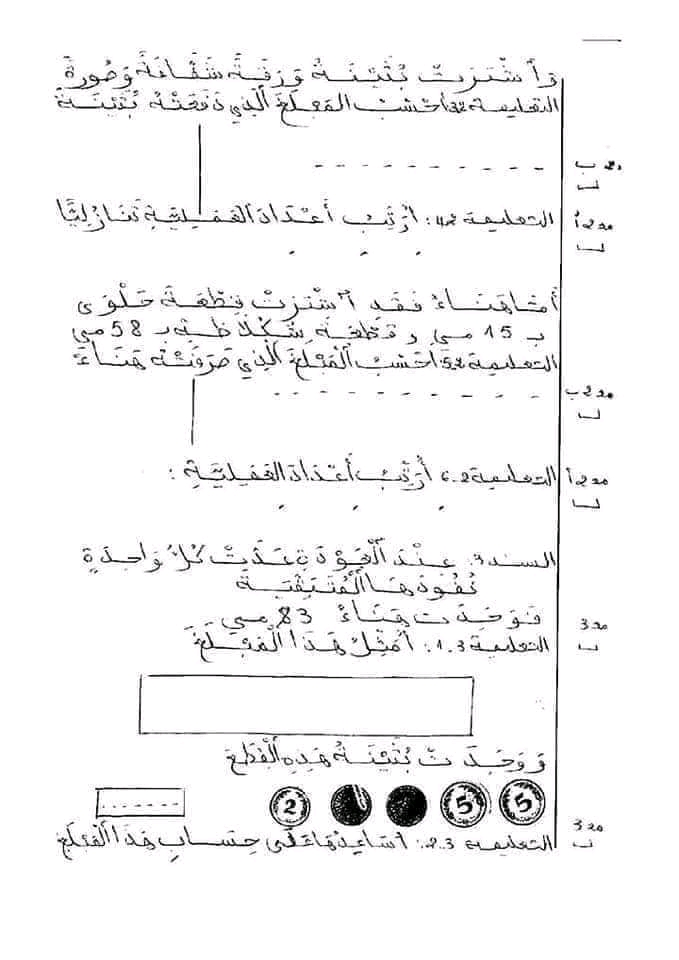 وَٱشْتَرَتْ بُثَيْنَةُ وَرَقَةً شَفَّافَةً وَصُورَةً
التعليمة 3.2 اَحْسُبُ المَبْلَغَ الَّذِي دَفَعَتْهُ بُثَيْنَةُ
مع 2 ب
التعليمة 4.2: أُرَتِّبُ أَعْدَادَ العَمَلِيَّةِ تَنَازُلِيًّا
مع 2 أ
أَمَّا هَنَاءُ فَقَدِ ٱشْتَرَتْ قِطْعَةَ حَلْوَى
بِ 15 مي وقطعةَ شُكُلاَطَةٍ بـ 58 مي
التعليمة 5.2 اَحْسُبُ الْمَبْلَغَ الَّذِي صَرَفَتْهُ هَنَاءُ
مع 2 ب
التعليمة 6.2 أُرَتِّبُ أَعْدَادَ العَمَلِيَّةِ:
مع 2 أ
السند 3: عِنْدَ الْعَوْدَةِ عَدَّتْ كُلُّ وَاحِدَةٍ
نُقُودَهَا الْمُتَبَقِّيَةَ
فَوَجَدَتْ هَنَاءُ 83 مي
التعليمة 1.3: أُمَثِّلُ هَذَا الْمَبْلَغَ
مع 3
وَوَجَدَتْ بُثَيْنَةُ هَذِهِ الْقِطَعَ
5 5 2
التعليمة 2.3: أُسَاعِدُهَا عَلَى حِسَابِ هَذَا الْمَبْلَغِ
مع 3